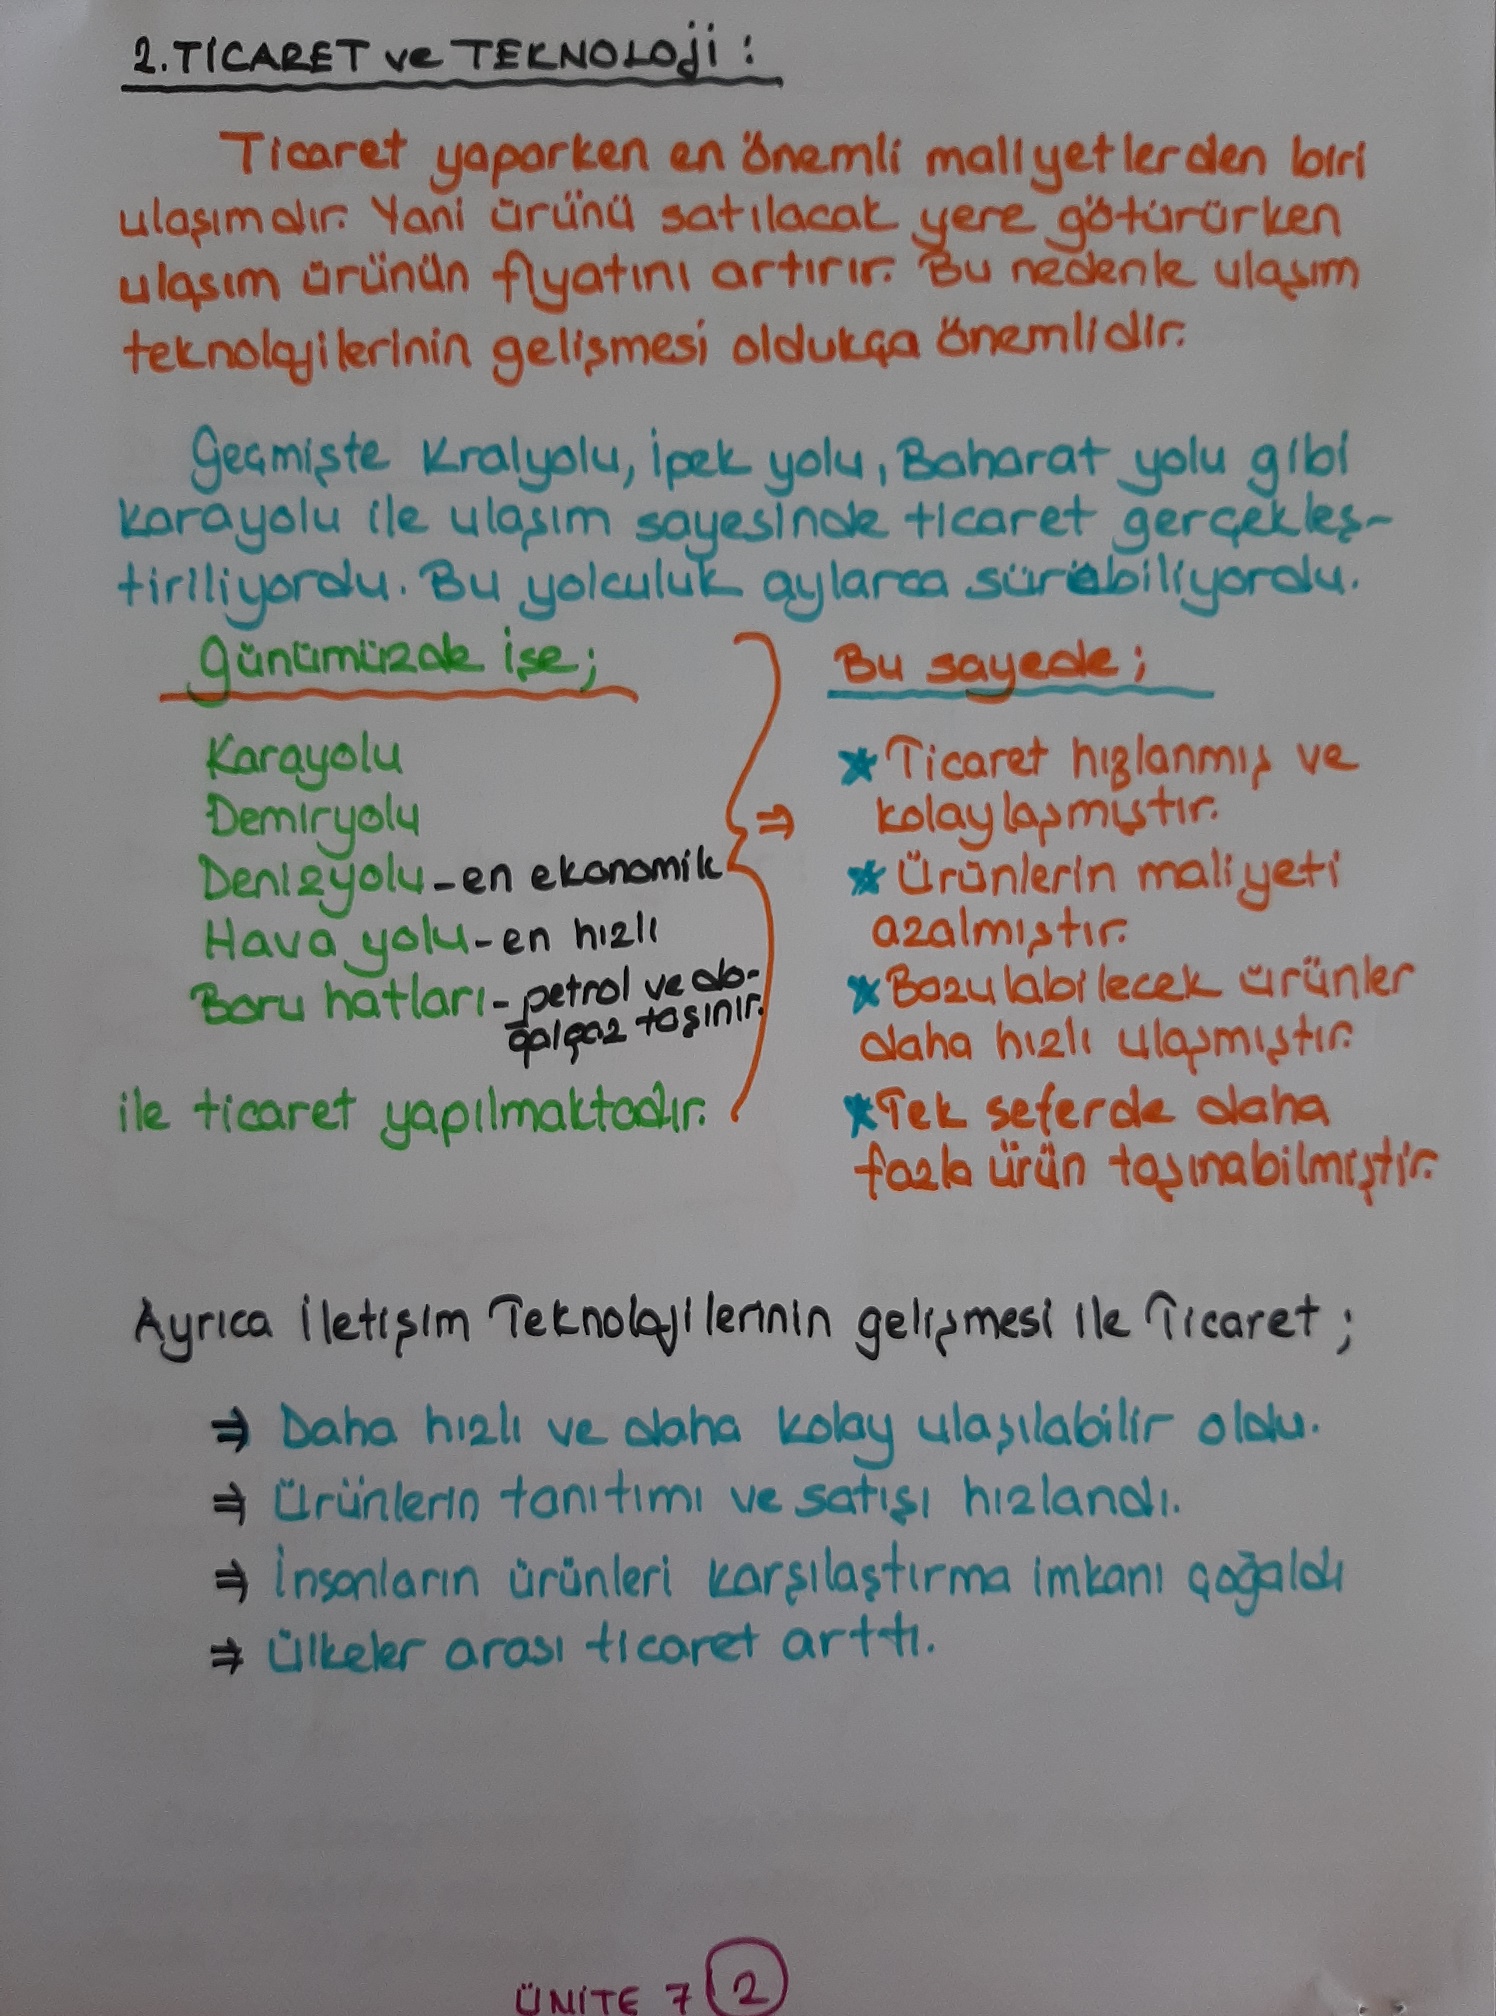 2. TİCARET ve TEKNOLOji :
Ticaret yaparken en önemli maliyetlerden biri
ulaşımdır. Yani ürünü satılacak yere götürürken
ulaşım ürünün fiyatını artırır. Bu nedenle ulaşım
teknolojilerinin gelişmesi oldukça önemlidir.
Geçmişte Kralyolu, İpek yolu, Baharat yolu gibi
karayolu ile ulaşım sayesinde ticaret gerçekleş-
tiriliyordu. Bu yolculuk aylarca sürebiliyordu.
Günümüzde ise;
Karayolu
Demiryolu
Denizyolu - en ekonomik
Hava yolu - en hızlı
Boru hatları - petrol ve do-
ğalgaz taşınır.
ile ticaret yapılmaktadır.
⇒
Bu sayede;
* Ticaret hızlanmış ve
kolaylaşmıştır.
* Ürünlerin maliyeti
azalmıştır.
* Bozulabilecek ürünler
daha hızlı ulaşmıştır.
* Tek seferde daha
fazla ürün taşınabilmiştir.
Ayrıca İletişim Teknolojilerinin gelişmesi ile Ticaret ;
⇒ Daha hızlı ve daha kolay ulaşılabilir oldu.
⇒ Ürünlerin tanıtımı ve satışı hızlandı.
⇒ İnsanların ürünleri karşılaştırma imkanı çoğaldı
⇒ Ülkeler arası ticaret arttı.
ÜNİTE 7 2